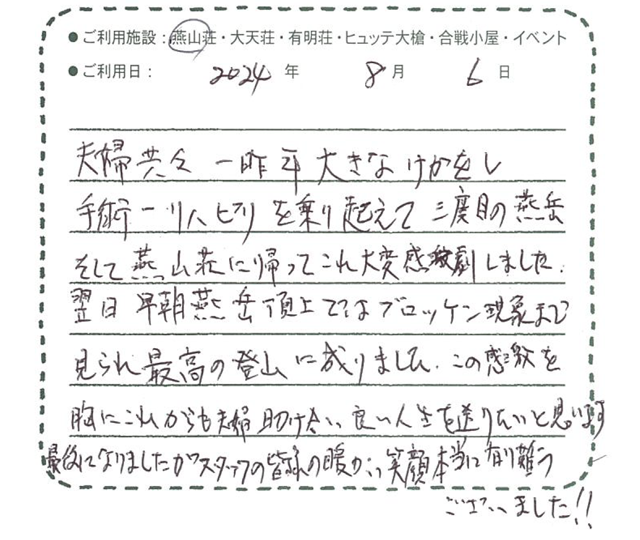 ●ご利用施設：燕山荘・大天荘・有明荘・ヒュッテ大槍・合戦小屋・イベント
●ご利用日： 2024 年 8 月 6 日
夫婦共々 一昨年 大きなけがをし
手術－リハビリを乗り越えて 三度目の燕岳
そして燕山荘に帰ってこれ大変感激しました.
翌日 早朝燕岳頂上ではブロッケン現象まで
見られ最高の登山に成りました. この感激を
胸にこれからも夫婦助け合い良い人生を送りたいと思います
最後になりましたがスタッフの皆様の暖かい笑顔本当に有り難う
ございました!!